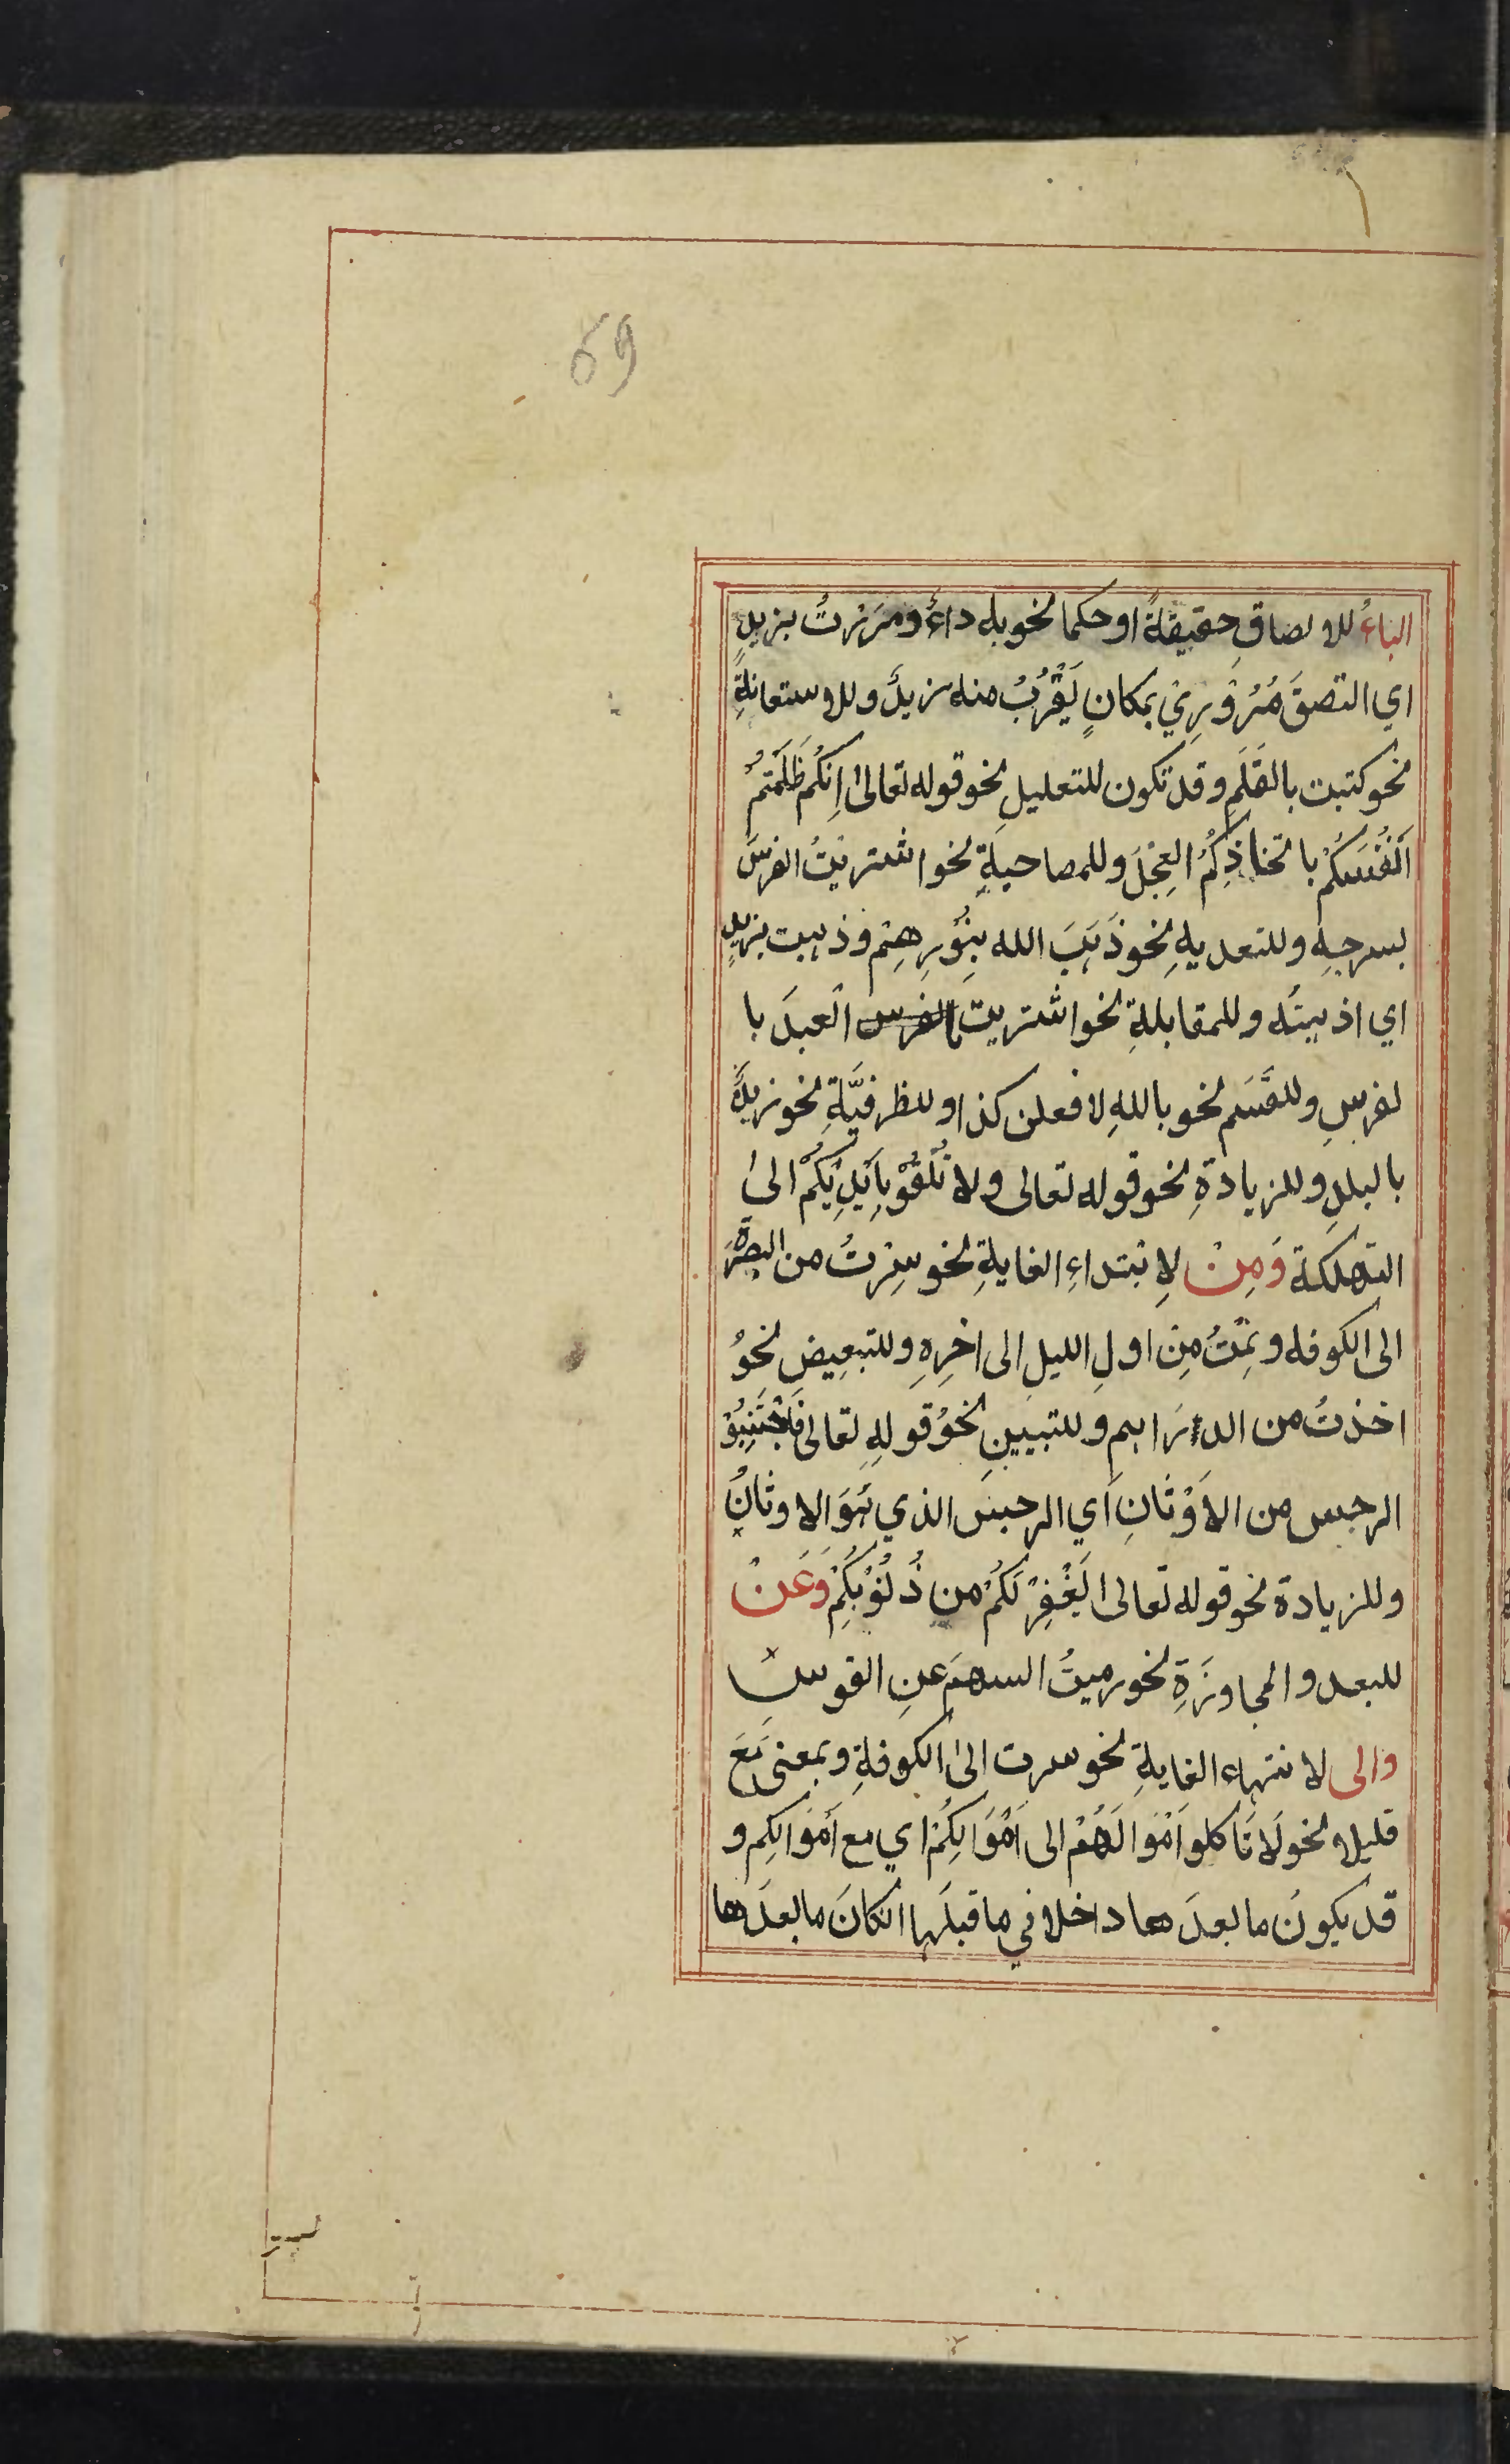 69
الباءُ للالصاقِ حقيقةً او حكما نحو به داءٌ ومَرَرْتُ بزيدٍ
اي التصقَ مُرُوْرِيْ بمكانٍ يَقْرُبُ منه زيدٌ وللاستعانةِ
نحو كتبت بالقَلَمِ وقد تكون للتعليلِ نحو قوله تعالىٰ اِنَّكُمْ ظَلَمْتُمْ
اَنْفُسَكُمْ باتخاذِكُمُ العِجْلَ وللمصاحبةِ نحو اشتريْتُ الفرسَ
بسرجِهِ وللتعديةِ نحو ذَهَبَ الله بِنُوْرِهِمْ وذهبت بزيدٍ
اي اذهبتُه وللمقابلةِ نحو اشتريت بالفرس العبدَ با
لفرسِ وللقَسَمِ نحو باللهِ لافعلن كذا وللظرفيَّةِ نحو زيدٌ
بالبلدِ وللزيادةِ نحو قوله تعالى ولا تُلْقُوْ بِاَيْدِيْكُمْ الىٰ
التهلكة وَمِنْ لاِبْتداءِ الغايةِ نحو سِرْتُ من البصرَة
الى الكوفه ونِمْتُ مِن اولِ الليلِ الى اخِرِهِ وللتبعِيضِ نحوُ
اخذتُ من الدرَاهم وللتبيينِ نحوُ قولِهِ تعالى فَاجْتَنِبُوْ
الرجس من الاَوْثَانِ اَي الرجسَ الذي هُوَ الاوثانُ
وللزيادة نحو قوله تعالى يَغْفِرْ لَكُمْ من ذُنُوْبِكُمْ وَعَنْ
للبعد والمجاوزَةِ نحو رميتُ السهمَ عنِ القوسِ
والى لانتهاء الغايةِ نحو سرت اِلىٰ الكوفةِ وبمعنى مَعَ
قليلا نحو لَا تَاكلو اَمْوَالَهُمْ الى اَمْوَالِكُمْ اي مع اَمْوَالِكم و
قد يكونَ ما بعدَها داخلا في ما قبلَها انكانَ ما بعدَها